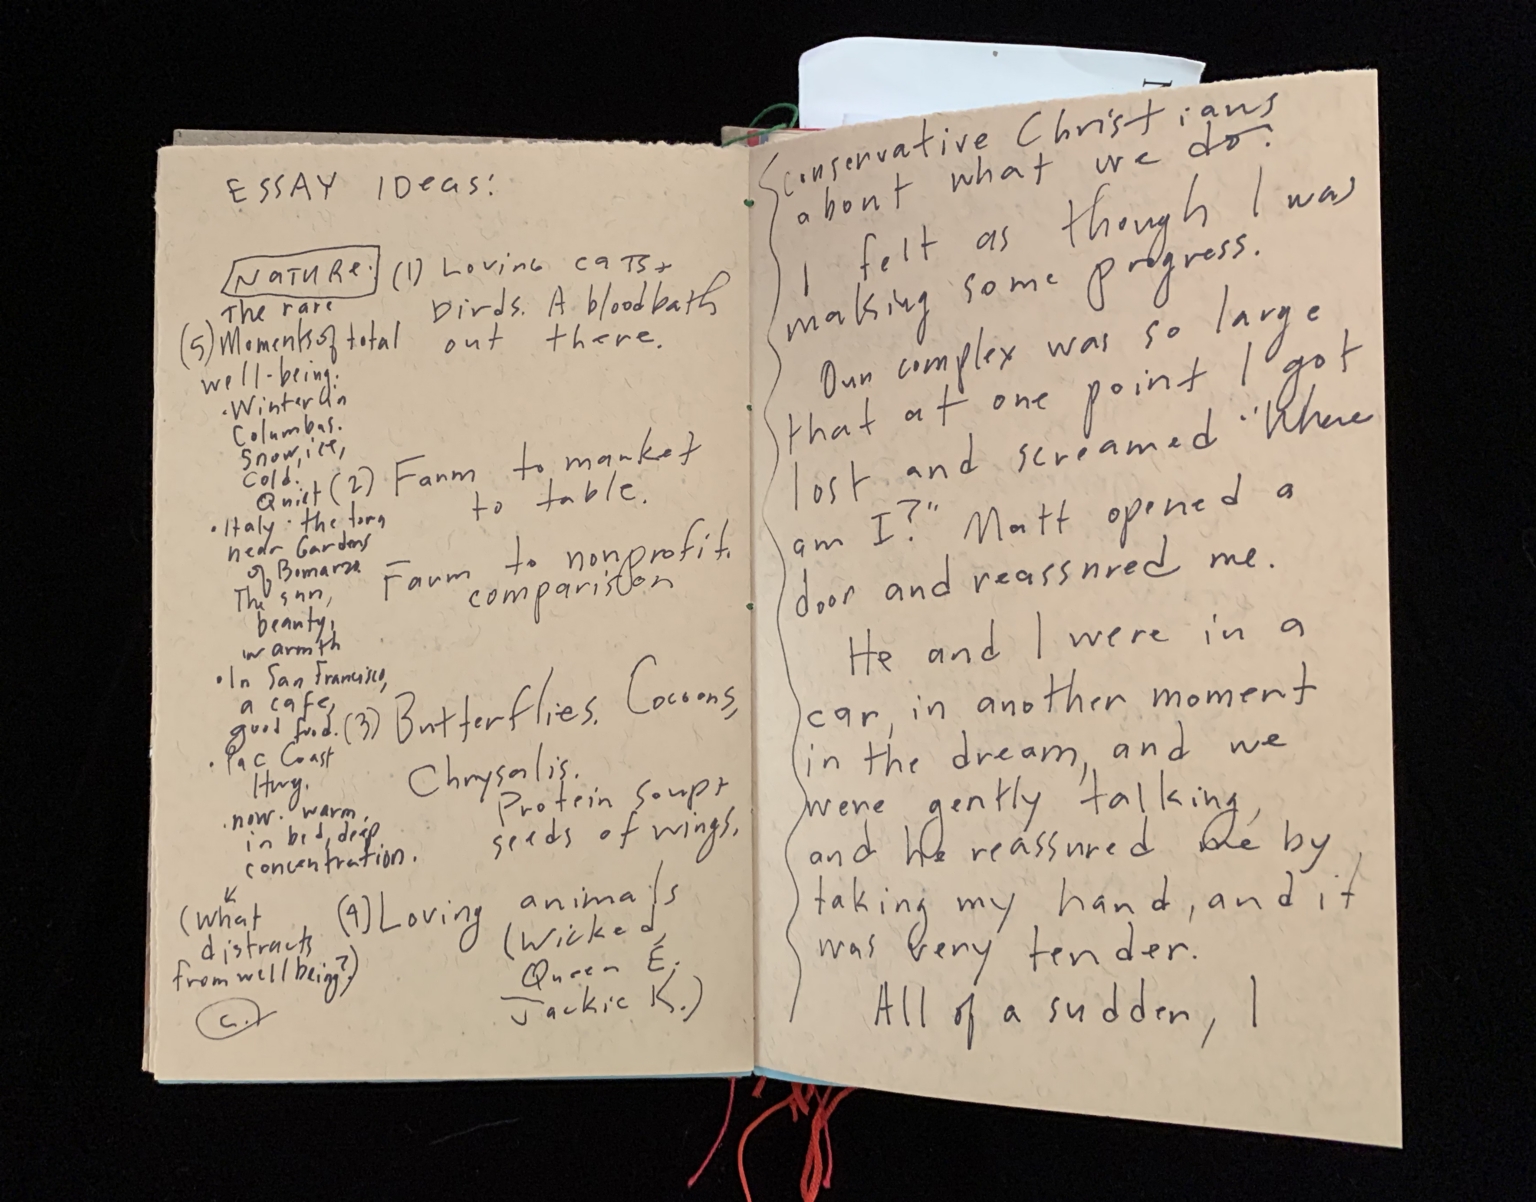 ESSAY IDeas:
NATURe: (1) Loving cats +
birds. A bloodbath
out there.
(2) Farm to market
to table.
Farm to nonprofit
comparison
(3) Butterflies. Cocoons,
Chrysalis.
Protein soup +
seeds of wings.
(4) Loving animals
(Wicked,
Queen E.
Jackie K.)
The rare
(5) Moments of total
well-being.
• Winter in
Columbus.
Snow, ice,
Cold.
Quiet
• Italy - the
near Gardens
of Bomarzo
The sun,
beauty,
warmth
• In San Francisco,
a cafe,
good food.
• Pac Coast
Hwy.
• now - warm,
in bed, deep
concentration.
(What
distracts
from wellbeing?)
conservative Christians
about what we do.
I felt as though I was
making some progress.
Our complex was so large
that at one point I got
lost and screamed "Where
am I?" Matt opened a
door and reassured me.
He and I were in a
car, in another moment
in the dream, and we
were gently talking,
and he reassured me by
taking my hand, and it
was very tender.
All of a sudden, I